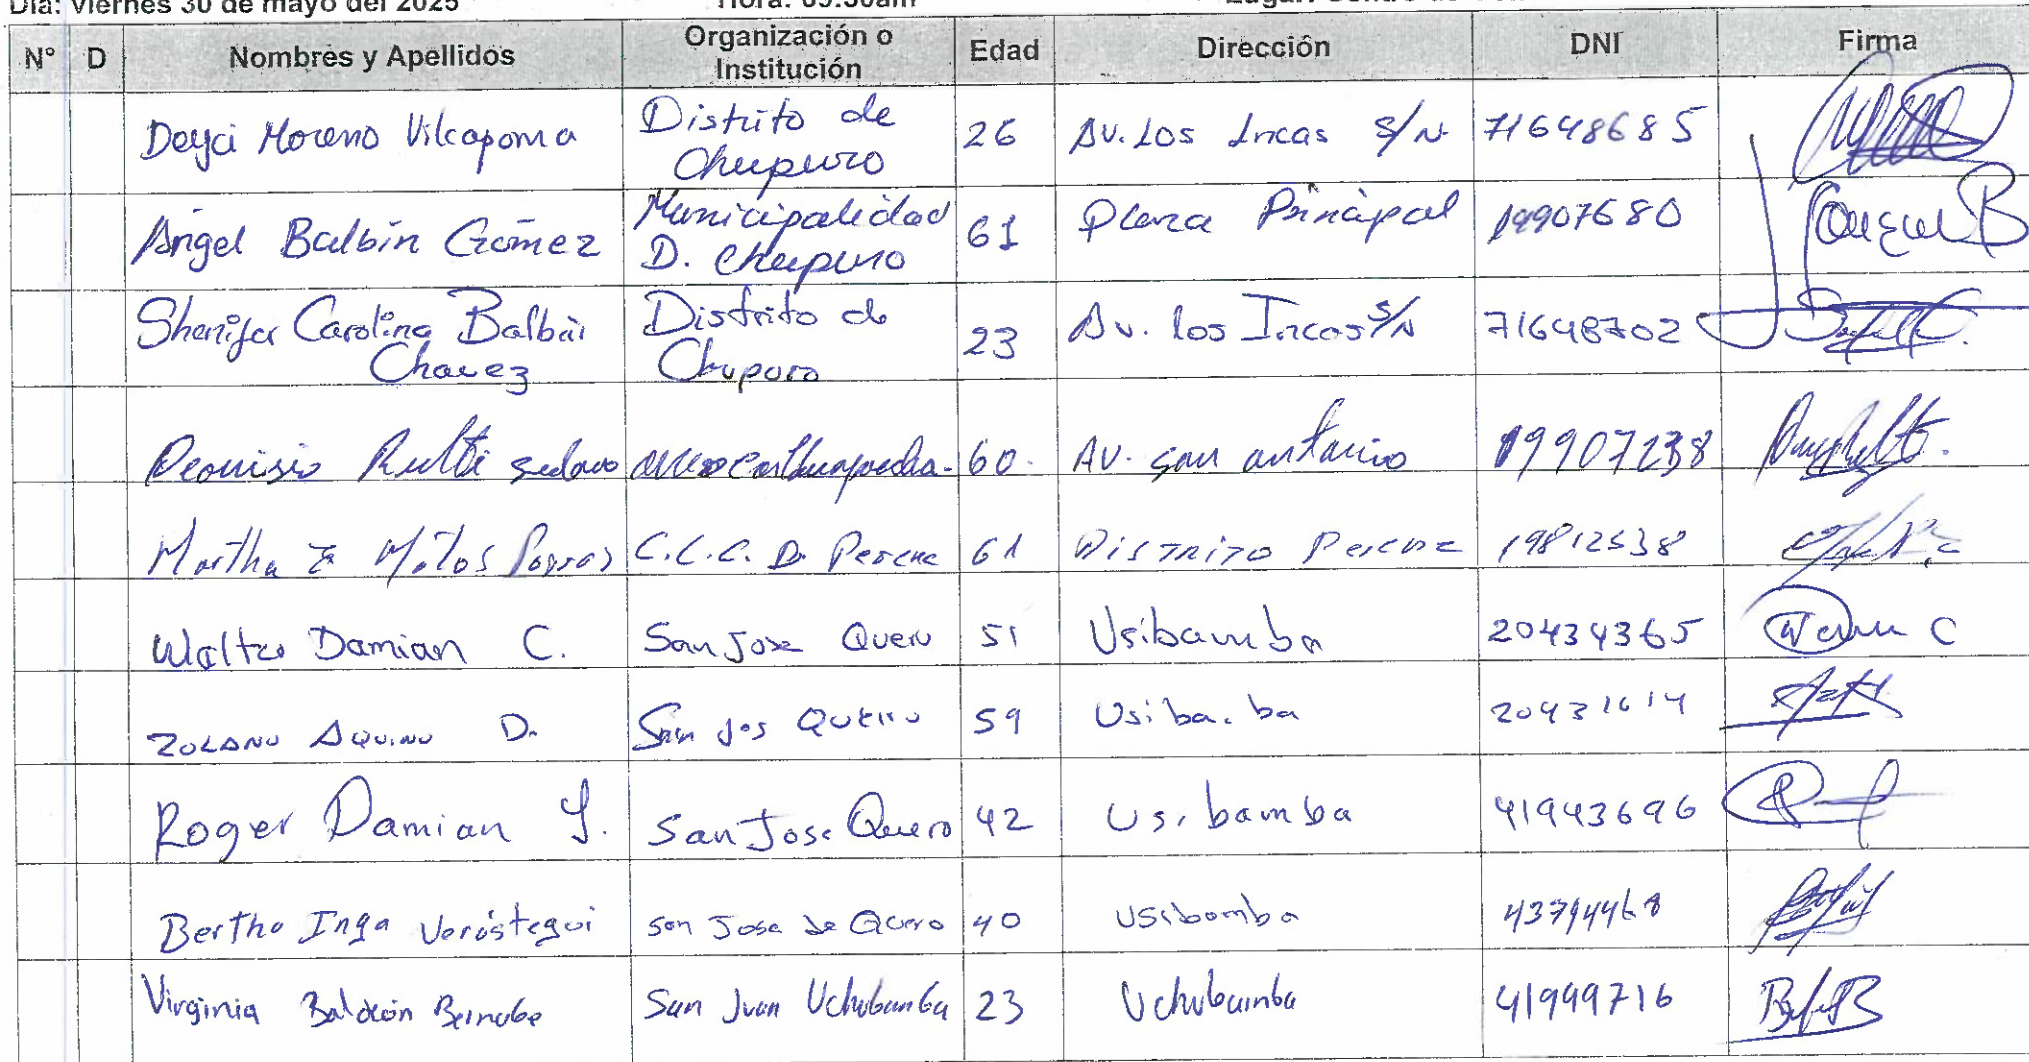 Día: viernes 30 de mayo del 2025 Hora: 09:30am Lugar: Centro de
N° D Nombres y Apellidos Organización o Institución Edad Dirección DNI Firma
Deyci Moreno Vilcapoma Distrito de Chupuro 26 Av. Los Incas S/N 71648685
Ángel Balbín Gómez Municipalidad D. Chupuro 61 Plaza Principal 19907680
Shenifer Carolina Balbín Chavez Distrito de Chupuro 23 Av. los Incas S/N 71648702
Deonisio 60. AV. san antonio 19907238
Martha E Matos Porras C.L.C. D. Perene 61 Distrito Perene 19812538
Walter Damian C. San Jose Quero 51 Usibamba 20434365
ZOLANO AQUINO D. San Jos Quero 59 Usiba.ba 20431614
Roger Damian Y. San Jose Quero 42 Usibamba 41943696
Bertha Inga Verástegui san Jose de Quero 40 Usibamba 43794468
Virginia Baldeón Bernabe San Juan Uchubamba 23 Uchubamba 41999716